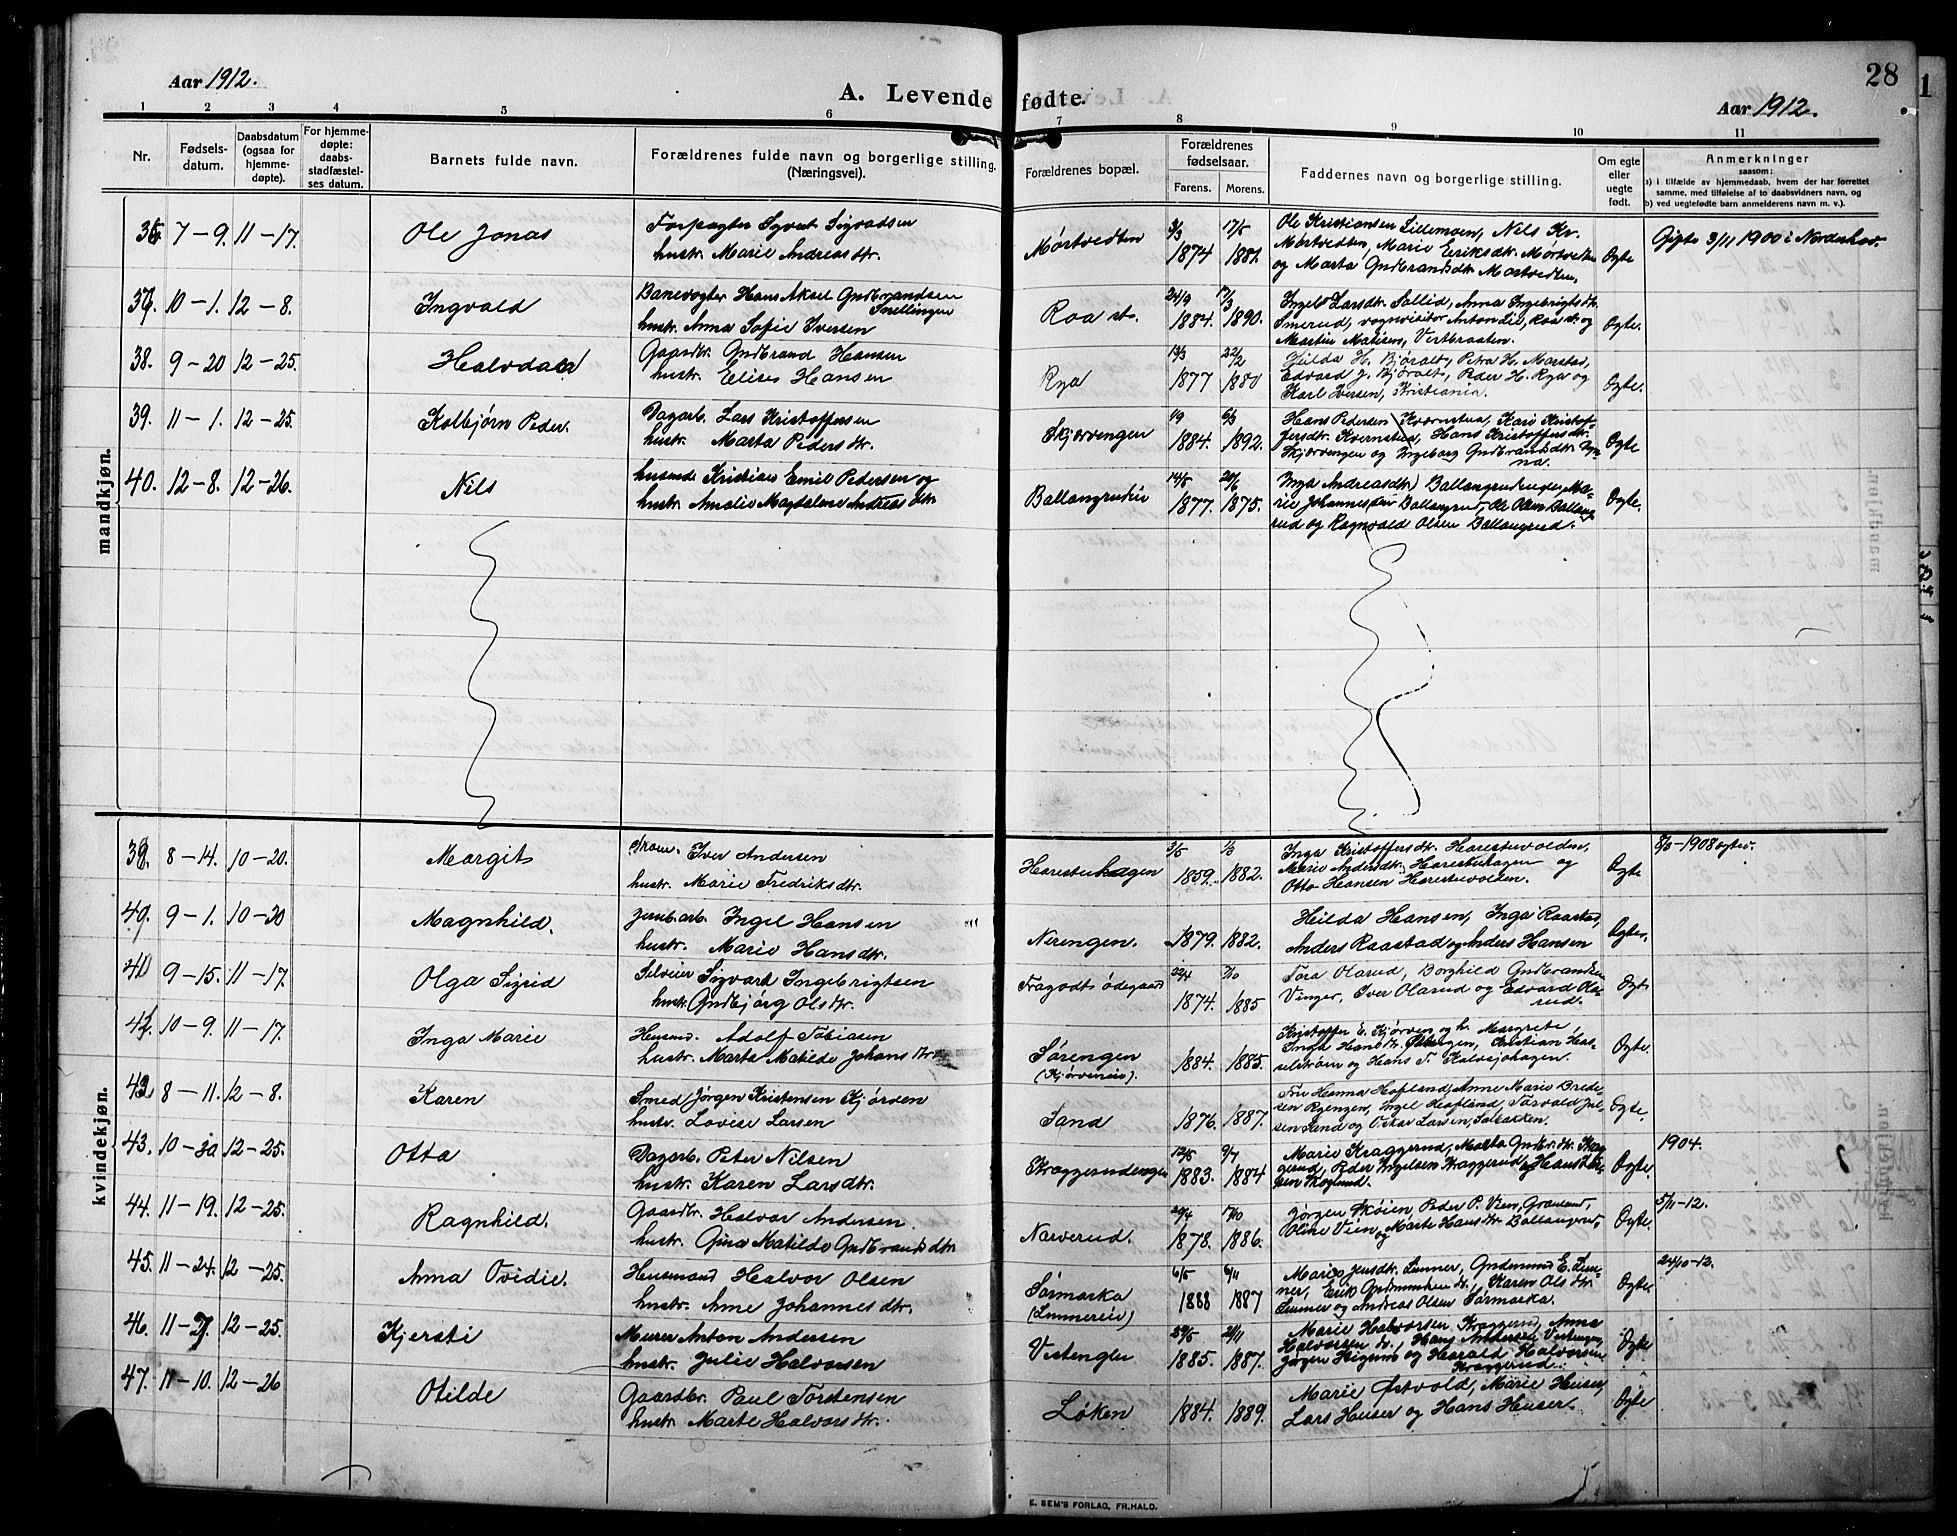 28
Aar 1912.
A. Levende fødte.
Aar 1912.
1 2 3 4 5 6 7 8 9 10 11
Nr.
Fødsels-
datum.
Daabsdatum
(ogsaa for
hjemme-
døpte).
For hjemme-
døpte:
daabs-
stadfæstel-
ses datum.
Barnets fulde navn.
Forældrenes fulde navn og borgerlige stilling.
(Næringsvei).
Forældrenes bopæl.
Forældrenes
fødselsaar.
Farens. Morens.
Faddernes navn og borgerlige stilling.
Om egte
eller
uegte
født.
Anmerkninger
saasom:
a) i tilfælde av hjemmedaab, hvem der har forrettet
samme, med tilføielse af to daabsvidners navn, og
b) ved uegtefødte barn anmelderens navn m. v.).
mandkjøn.
36. 7-9. 11-17. Ole Jonas
Forpagter Syvert Sigvadsen
hustr. Marie Andreasdtr.
Mørtvedten
3/3 17/5
1874 1881.
Ole Kristiansen Lillemoen, Nils Kr.
Mørtvedten, Marie Eriksdk. Mørtvedten
og Marta Gudbrandsdk. Mørtvedten,
Ogte
Gifte 3/11 1900 i Norderhov.
37. 10-1. 12-8. Ingvald
Banevogter Hans Aksel Gudbrandsen
Snellingen
hustr. Anna Sofie Iversen
Roa st.
24/9 17/3
1884. 1890.
Ingeb. Larsdtr. Sollid, Anna Ingebrigtsdtr.
Smerud, vognvisitør Anton Lie, Roa st. og
Martin Matisen,
Ogte.
38. 9-20 12-25. Halvdan
Gaardbr. Gudbrand Hansen
hustr. Elise Hansen
Rya
13/3 22/2
1877 1880
Hilda H. Bjøralt, Petra H. Marstad,
Edvard J. Bjøralt, Peder H. Rya og
Karl Iversen, Kristiania.
Ogte.
39. 11-1. 12-25. Kolbjørn Peder.
Dagarb. Lars Kristoffersen
hustr. Marta Pedersdtr.
Skjervengen
1/9 6/3
1884. 1892.
Hans Pedersen Kværnstua, Kari Kristof-
fersdk. Kvernstua, Hans Kristoffersdtr.
Skjervengen og Ingeborg Gudbrandsdk. Dyn-
na.
Ogte
40. 12-8. 12-26. Nils
husmand Kristian Emil Pedersen og
hustr. Amalie Magdalene Andreasdtr.
Ballangrudeie
14/5 20/6
1877. 1875.
Inga Andreasdtr. Ballangrudenger, Ma-
rie Johannesdtr. Ballangrud, Ole Olsen Ballang-
rud og Ragnvald Olsen Ballangrud.
Ogte.
kvindekjøn.
38. 8-14. 10-20. Margit
Skom. Iver Andersen
hustr. Marie Fredriksdtr.
Harestuhagen
3/5 1/3
1859. 1882.
Inga Kristoffersdk. Harestuvolden,
Marie Andersdk. Harestuhagen og
Otto Hansen Harestuvolden.
Ogte
1908 ogtev.
39. 9-1. 10-20 Magnhild.
Jernb.arb. Ingel Hansen
hustr. Marie Hansdtr.
Nerengen.
1879. 1882.
Hilda Hansen, Inga Raastad,
Anders Raastad og Anders Hansen
Ogte.
40 9-15. 11-17. Olga Sigrid
Selveier Sigvart Ingebrigtsen
hustr. Gudbjørg Olsdtr.
Fragodts ødegaard
22/4 7/10
1874. 1885
Tora Olarud, Borghild Gudbrandsen
Vinger, Iver Olarud og Edvard Ola-
rud.
Ogte
41. 10-9. 11-17. Inga Marie
Husmd. Adolf Tobiasen
hustr. Marta Matilde Johansdtr.
Sørengen
(Kjørveneie).
1884. 1885.
Kristoffer E. Kjørven og h. Margrete,
Inga Hansdtr. Kristian Has-
selstrøm og Hans T. Kalvsjøhagen.
Ogte.
42. 8-11. 12-8. Karen
Smed Jørgen Kristensen Kjørven
hustr. Lovise Larsen
Sand
1876. 1887.
Fru Hanna Hofland, Anne Marie Brede-
sen Ryengen, Ingel Hofland, Torvald Jul-
sen Sand og Oskar Larsen, Solbakken.
Ogte.
43. 10-30 12-25. Otta
Dagarb. Peter Nilsen
hustr. Karen Larsdtr.
Kraggerudengen
12/5 9/7
1883. 1884
Marie Kraggerud, Marta Gudbr.dtr. Krag-
gerud, Peder Ingelsen Kraggerud og Hans
Skoglund.
Ogte.
1904.
44. 11-19. 12-25. Ragnhild.
Gaardbr. Halvor Andersen.
hustr. Gina Matilde Gudbrandsdtr.
Narverud.
29/4 17/10
1878. 1886.
Jørgen Skøien, Peder P. Vien, Granlund,
Oline Vien og Marte Hansdtr. Ballangrud,
Ogte.
5/11-12.
45. 11-24. 12-25. Anna Ovidie.
Husmand Halvor Olsen
hustr. Anne Johannesdtr.
Sørmarka
(Lunnereie)
6/5 6/11
1888 1887
Marie Jensdtr. Lunner, Gudmund E. Lun-
ner, Erik Gudmundsen, Karen Olsdtr.
Lunner og Andreas Olsen Sørmarka.
Ogte.
24/10-12.
46. 11-2. 12-25. Kjersti
Murer Anton Andersen
hustr. Julie Halvorsen
Vestengen
29/5 21/11
1885. 1887.
Marie Halvorsen Kraggerud, Anna
Halvorsen Hans Andersen Vestengen,
Jørgen og Harald Halvorsen
Kraggerud.
Ogte
47. 11-10. 12-26 Otilde
Gaardbr. Paul Torstensen
hustr. Marte Halvorsdtr.
Løken
1884. 1889.
Marie Østvold, Marie Huser,
Lars Huser og Hans Huser.
Ogte
E. SEM'S FORLAG, FR.HALD.